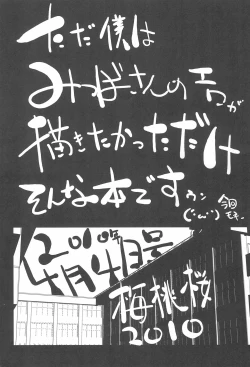 ただ僕は
みつばさんのエロが
描きたかっただけ
そんな本です
今回
2010年
4月4日号
梅桃桜
2010